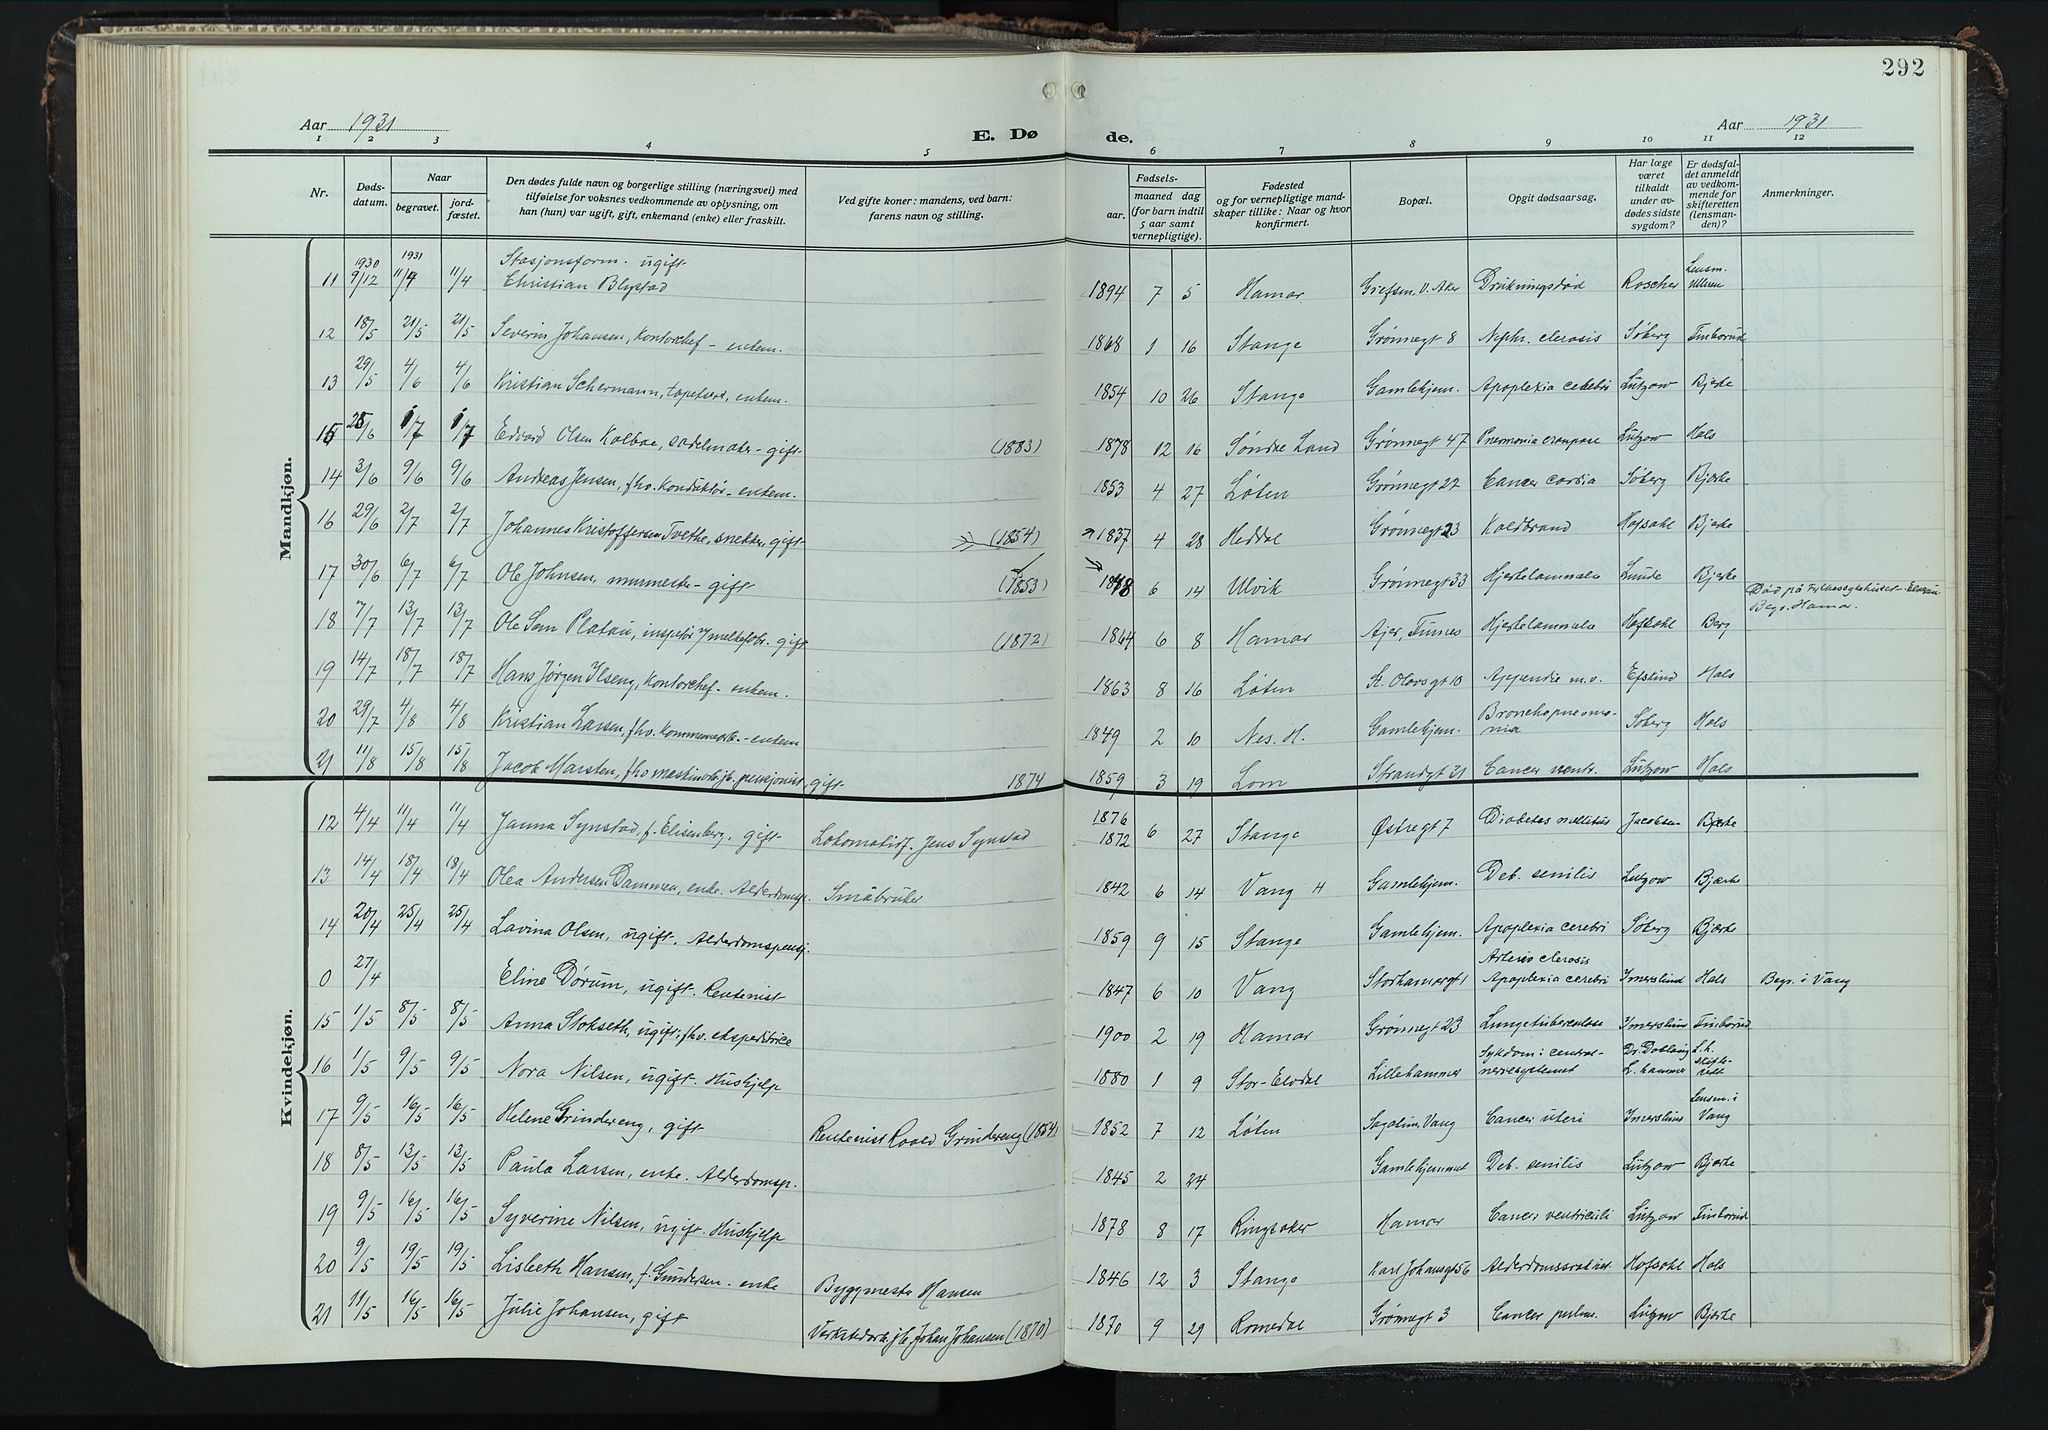 292
Aar 1931 E. Dø de. Aar 1931
1 2 3 4 5 6 7 8 9 10 11 12
Nr. Døds-datum. Naar begravet. jord-fæstet. Den dødes fulde navn og borgerlige stilling (næringsvei) med tilføielse for voksnes vedkommende av oplysning, om han (hun) var ugift, gift, enkemand (enke) eller fraskilt. Ved gifte koner: mandens, ved barn: farens navn og stilling. Fødsels- aar. maaned dag (for barn indtil 5 aar samt vernepligtige). Fødested og for vernepligtige mandskaper tillike: Naar og hvor konfirmert. Bopæl. Opgit dødsaarsag. Har læge været tilkaldt under avdødes sidste sygdom? Er dødsfaldet anmeldt av vedkommende for skifteretten (lensmanden)? Anmerkninger.
Mandkjøn.
11 1930 9/12 1931 11/4 11/4 Stasjonsform. ugift Christian Blystad 1894 7 5 Hamar Grefsen, V. Aker Drukningsdød Roscher Lensm. Ullern
12 18/5 21/5 21/5 Severin Johansen, Kontorchef - enkem. 1868 1 16 Stange Grønnegt 8 Nephr. clerosis Søberg Finborud
13 29/5 4/6 4/6 Kristian Schermann, tapetsere, enkem. 1854 10 26 Stange Gamlehjem. Apoplexia cerebri Lützow Bjerke
15 25/6 1/7 1/7 Edvard Olsen Kolboe, sadelmaker - gift (1883) 1878 12 16 Søndre Land Grønnegt 47 Pneumonia croupose Lützow Hals
14 3/6 9/6 9/6 Andreas Jensen, fhv. Konduktør - enkem. 1853 4 27 Løten Grønnegt 22 Cancer cardia Søberg Bjerke
16 29/6 2/7 2/7 Johannes Kristoffersen Tvethe, snekker, gift (1854) 1837 4 28 Heddal Grønnegt 23 Koldbrand Hofsohl Bjerke
17 30/6 6/7 6/7 Ole Johnsen, murmester - gift (1853) 1848 6 14 Ulvik Grønnegt 33 Hjertelammelse Lunde Bjerke
18 7/7 13/7 13/7 Ole Sem Platou, inspektør / melkefabr. gift (1872) 1864 6 8 Hamar Ajer, Furnes Hjertelammelse Hofsohl Berg Død på Fylkessykehuset - Elverum Begr. Hamar.
19 14/7 18/7 18/7 Hans Jørgen Ilseng, Kontorchef - enkem. 1863 8 16 Løten St. Olavsgt 10 Appendic m.v. Efslind Hals
20 29/7 4/8 4/8 Kristian Larsen, fhv. Kommunearb. - enkem 1849 2 10 Nes. H. Gamlehjem. Bronchopneumonia Søberg Hals
21 11/8 15/8 15/8 Jacob Marsten, fhv maskinarb. jb. pensjonist, gift 1874 1859 3 19 Lom Strandgt 31 Cancer ventr. Lützow Hals
Kvindekjøn.
12 4/4 11/4 11/4 Janna Synstad, f. Elisenberg, gift Lokomotivf. Jens Synstad 1876 1872 6 27 Stange Østregt 7 Diabetes mellitus Jacobsen Bjerke
13 14/4 18/4 18/4 Olea Andersen Dammen, enke. Alderdomsp. Småbruker 1842 6 14 Vang H Gamlehjem. Deb. senilis Lützow Bjerke
14 20/4 25/4 25/4 Lavina Olsen, ugift. Alderdomspensj. 1859 9 15 Stange Gamlehjem. Apoplexia cerebri Søberg Bjerke
0 27/4 Eline Dørum, ugift. Rentenist 1847 6 10 Vang Storhamargt 1 Arterio clerosis Apoplexia cerebri Imerslund Hals Begr. i Vang
15 1/5 8/5 8/5 Anna Stokseth, ugift, fhv. ekspeditrice 1900 2 19 Hamar Grønnegt 23 Lungetuberkulose Imerslund Finborud
16 1/5 9/5 9/5 Nora Nilsen, ugift. Hushjelp 1880 1 9 Stor-Elvdal Lillehammer Sykdom i central-nervesystemet Dr. Dobloug L.hammer L.h. skifterett
17 9/5 16/5 16/5 Helene Grindereng, gift Rentenist Roald Grindereng (1854) 1852 7 12 Løten Sagatun, Vang Cancer uteri Imerslund Lensm. i Vang
18 8/5 13/5 13/5 Paula Larsen, enke. Alderdomsp. 1845 2 24 Gamlehjemmet Deb. senilis Lützow Bjerke
19 9/5 16/5 16/5 Syverine Nilsen, ugift. Hushjelp 1878 8 17 Ringsaker Hamar Cancer ventriculi Lützow Finborud
20 9/5 19/5 19/5 Lisbeth Hansen, f. Gundersen. enke Byggmester Hansen 1846 12 3 Stange Karl Johansgt 56 Alderdomssvakhet Hofsohl Hals
21 11/5 16/5 16/5 Julie Johansen, gift Verkstedarb. jb. Johan Johansen (1870) 1870 9 29 Romedal Grønnegt 3 Cancer pulm. Lützow Bjerke